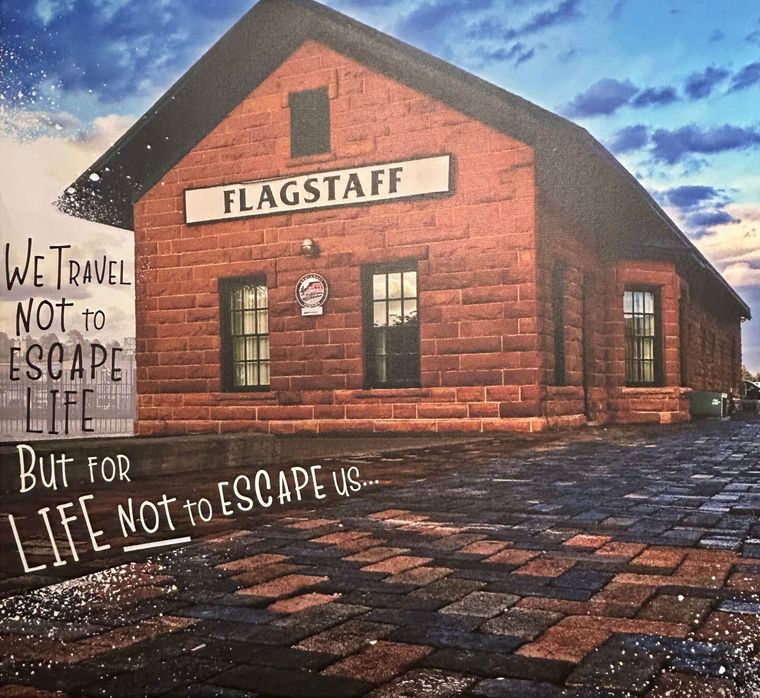 FLAGSTAFF
WE TRAVEL
NOT TO
ESCAPE
LIFE
BUT FOR
LIFE NOT TO ESCAPE US...